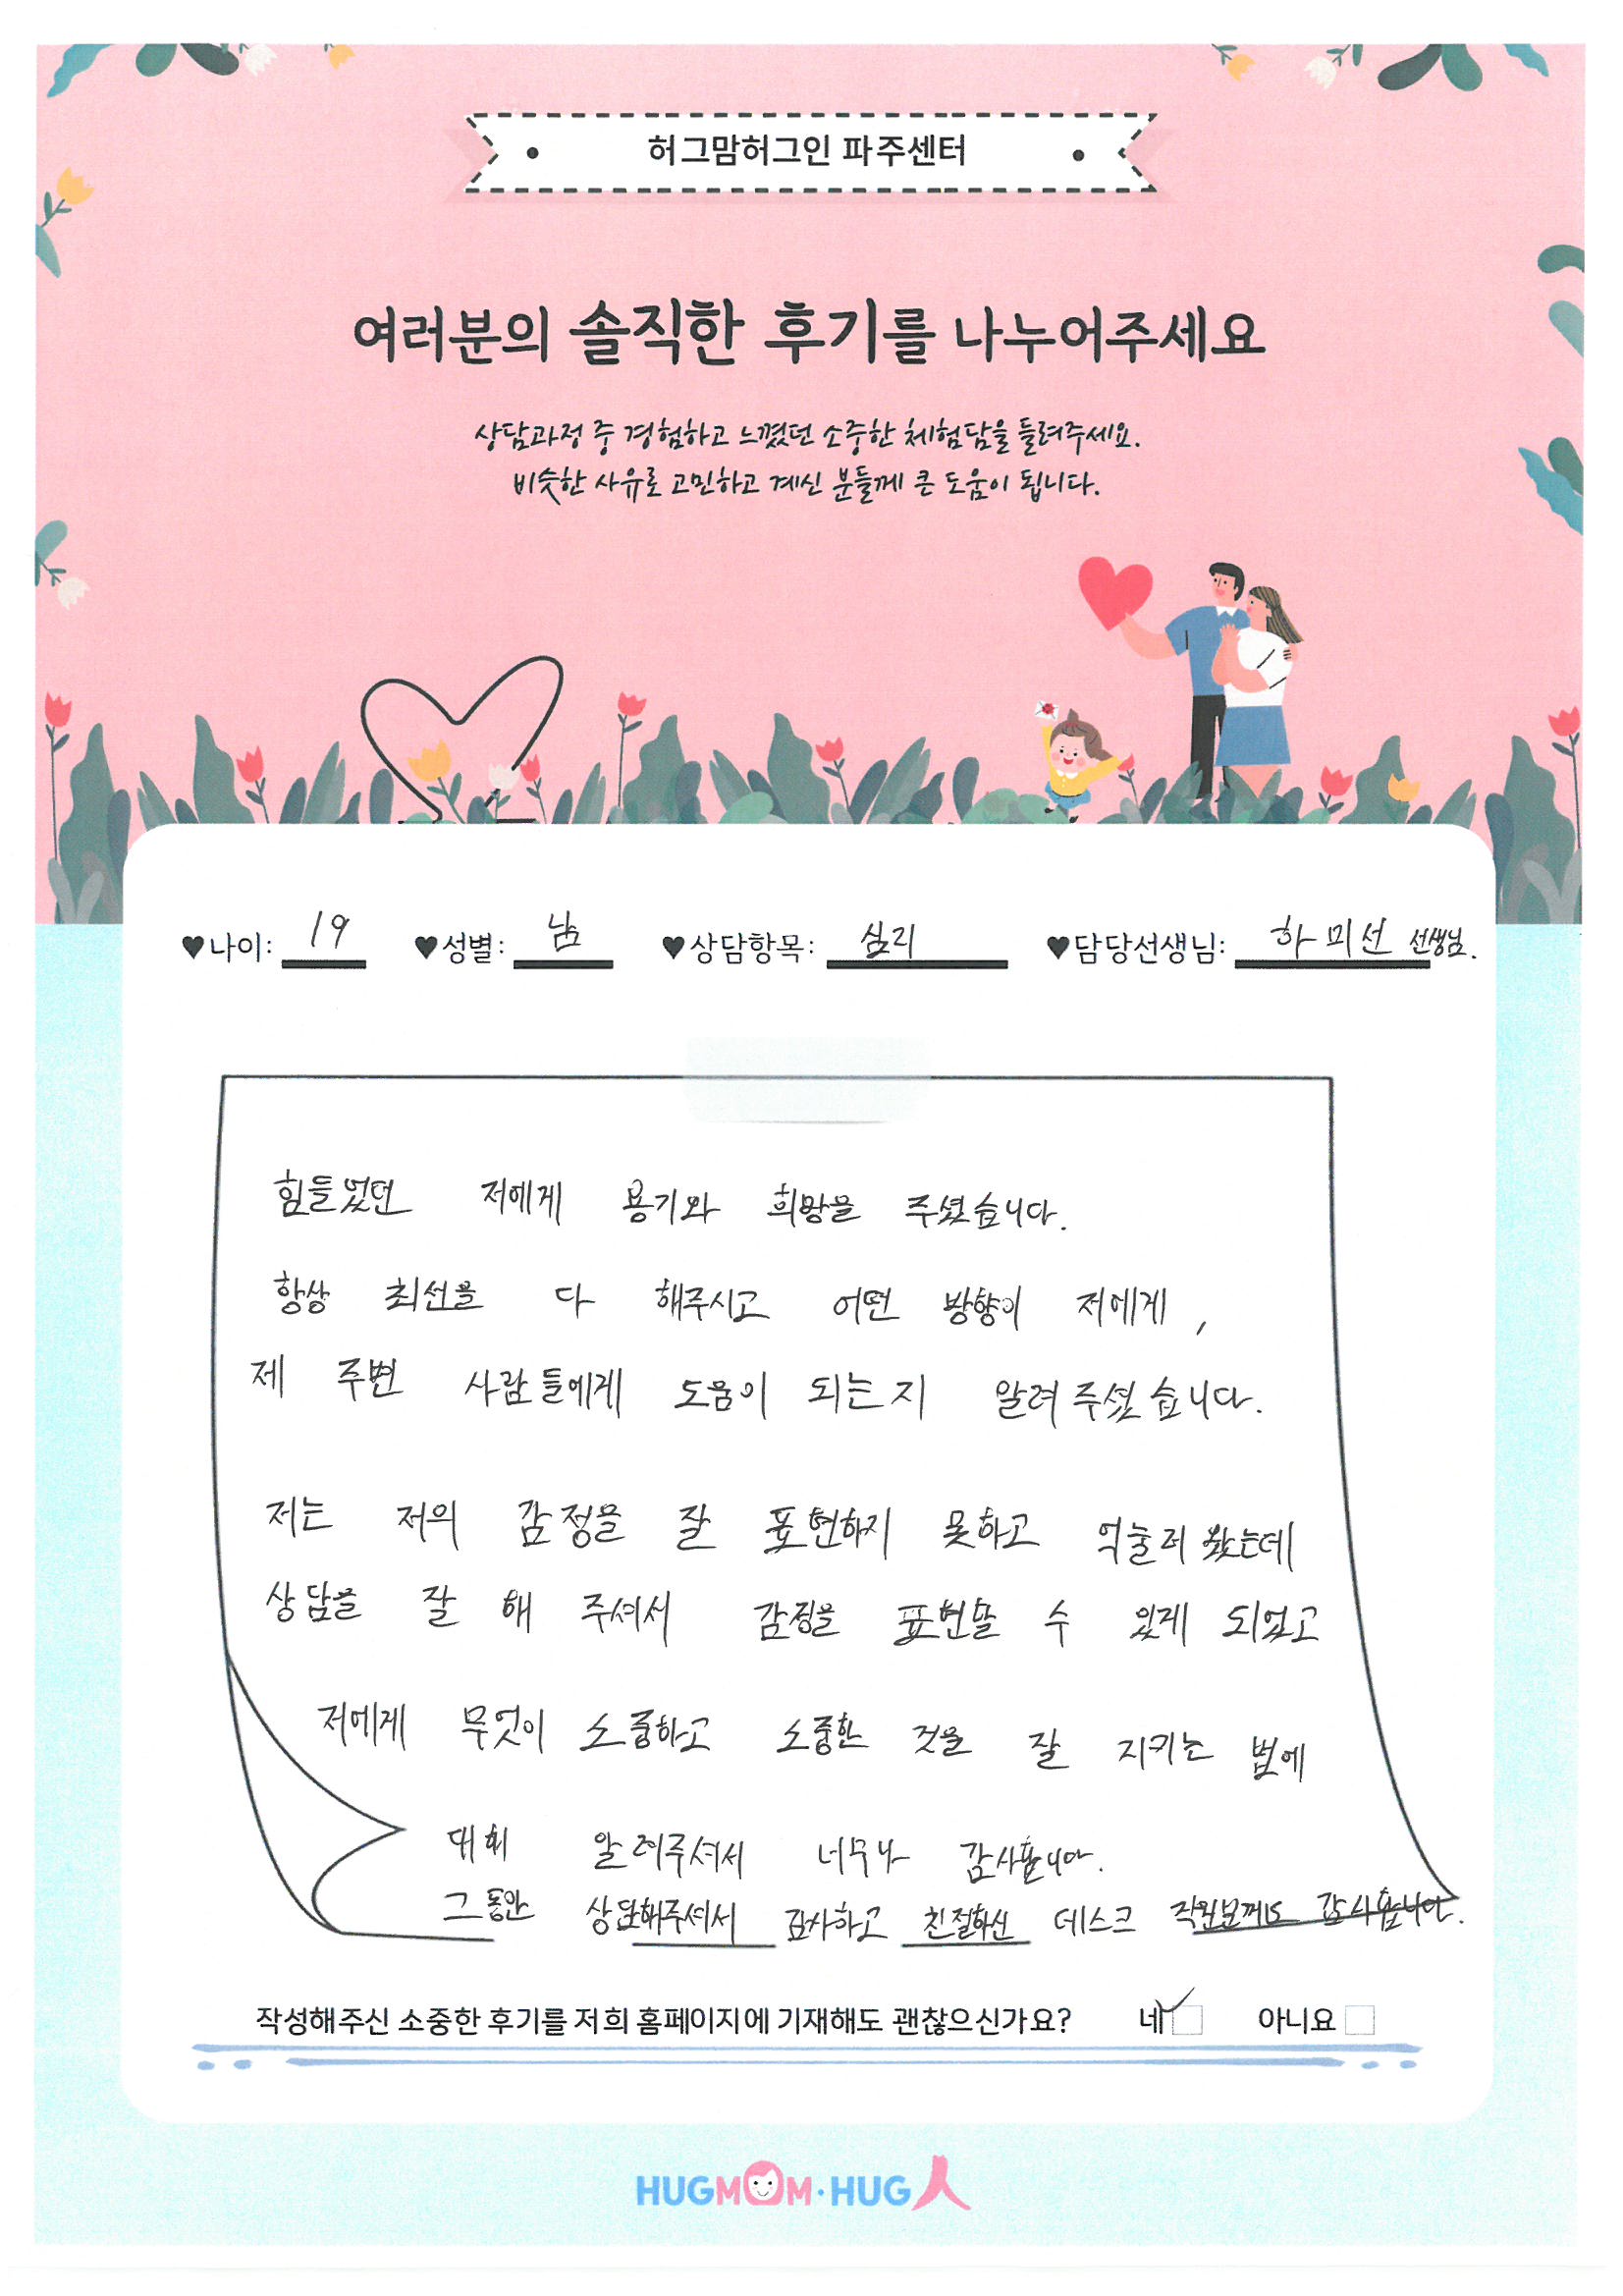 허그맘허그인 파주센터
여러분의 솔직한 후기를 나누어주세요
상담과정 중 경험하고 느꼈던 소중한 체험담을 들려주세요.
비슷한 사유로 고민하고 계신 분들께 큰 도움이 됩니다.
♥나이: 19 ♥성별: 남 ♥상담항목: 심리 ♥담당선생님: 하미선 선생님.
힘들었던 저에게 용기와 희망을 주셨습니다.
항상 최선을 다 해주시고 어떤 방향이 저에게,
제 주변 사람들에게 도움이 되는지 알려주셨습니다.
저는 저의 감정을 잘 표현하지 못하고 억눌러왔는데
상담을 잘 해 주셔서 감정을 표현할 수 있게 되었고
저에게 무엇이 소중하고 소중한 것을 잘 지키는 법에
대해 알려주셔서 너무나 감사합니다.
그동안 상담해주셔서 감사하고 친절하신 데스크 직원분께도 감사합니다.
작성해주신 소중한 후기를 저희 홈페이지에 기재해도 괜찮으신가요? 네 아니요
HUGMOM·HUG人